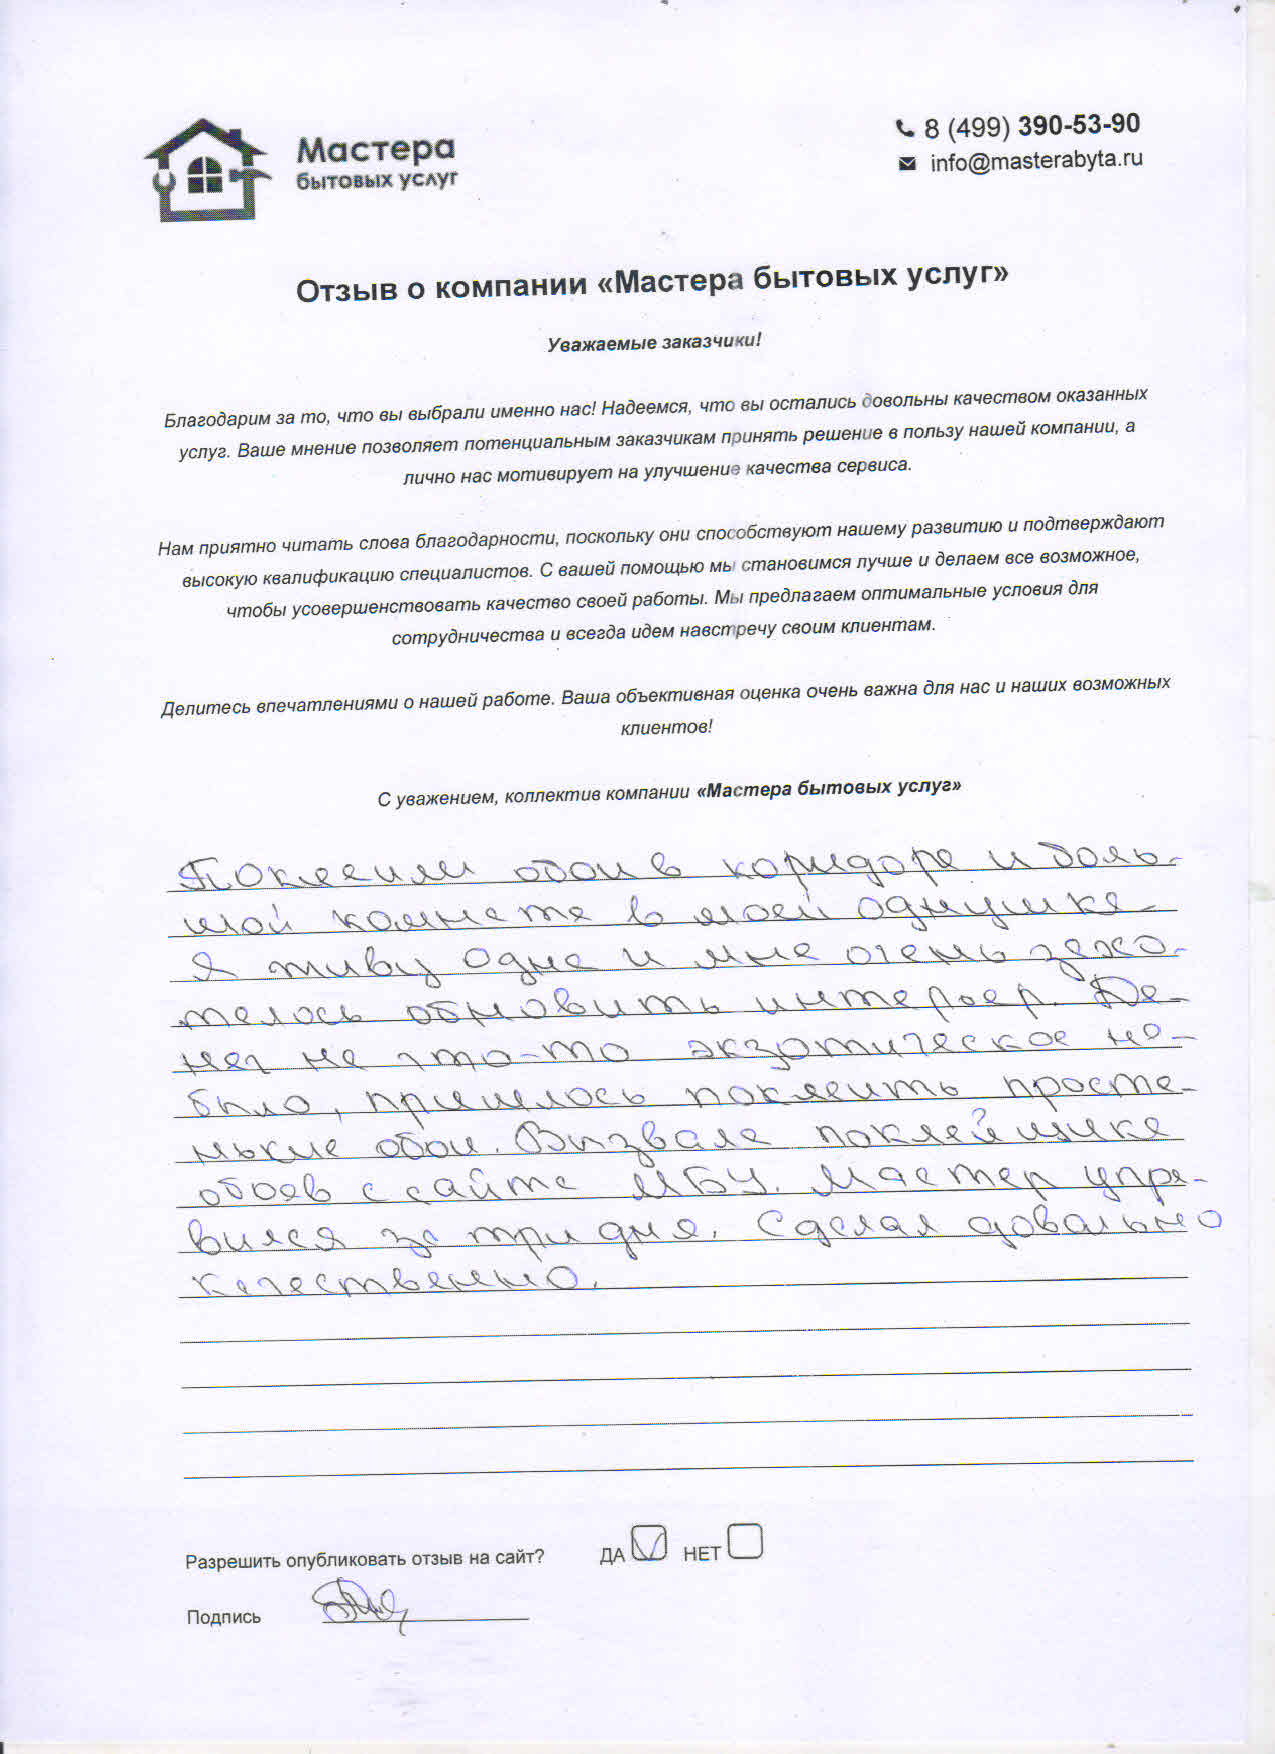 Мастера
бытовых услуг
8 (499) 390-53-90
info@masterabyta.ru
Отзыв о компании «Мастера бытовых услуг»
Уважаемые заказчики!
Благодарим за то, что вы выбрали именно нас! Надеемся, что вы остались довольны качеством оказанных
услуг. Ваше мнение позволяет потенциальным заказчикам принять решение в пользу нашей компании, а
лично нас мотивирует на улучшение качества сервиса.
Нам приятно читать слова благодарности, поскольку они способствуют нашему развитию и подтверждают
высокую квалификацию специалистов. С вашей помощью мы становимся лучше и делаем все возможное,
чтобы усовершенствовать качество своей работы. Мы предлагаем оптимальные условия для
сотрудничества и всегда идем навстречу своим клиентам.
Делитесь впечатлениями о нашей работе. Ваша объективная оценка очень важна для нас и наших возможных
клиентов!
С уважением, коллектив компании «Мастера бытовых услуг»
Поклеили обои в коридоре и боль-
шой комнате в моей однушке.
Я живу одна и мне очень захо-
телось обновить интерьер. Де-
нег на что-то экзотическое не-
было, пришлось поклеить просте-
нькие обои. Вызвала поклейщика
обоев с сайта МБУ. Мастер упра-
вился за три дня. Сделал довально
качественно.
Разрешить опубликовать отзыв на сайт? ДА НЕТ
Подпись